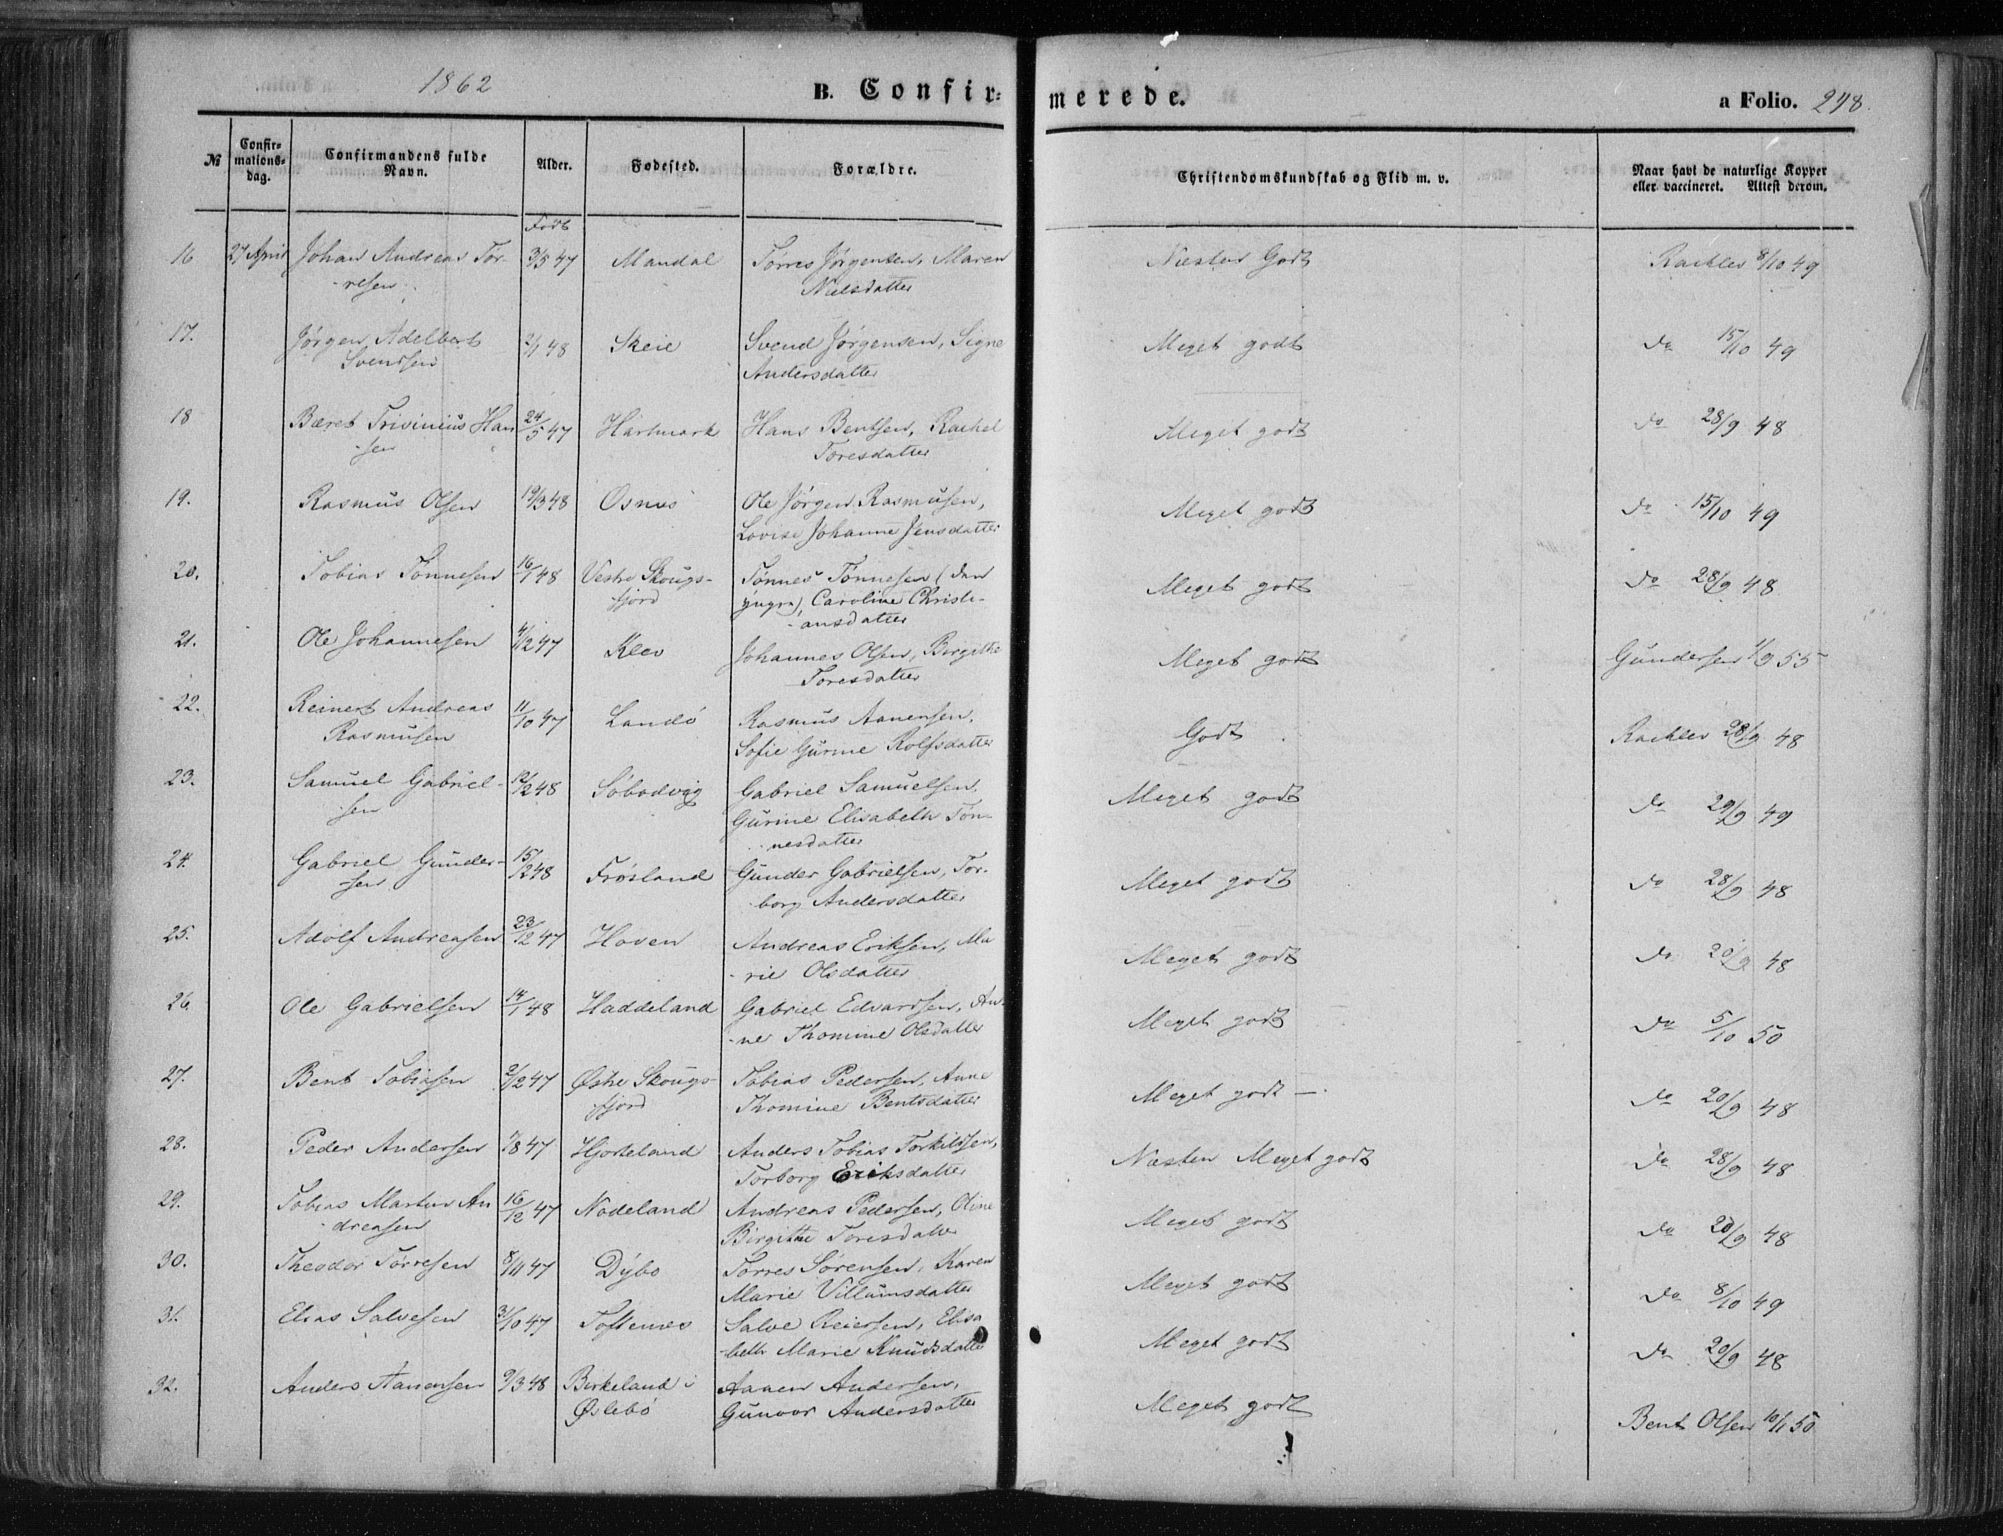 1862 B. Confir= merede. a Folio. 248.
№ Confir=mations=dag. Confirmandens fulde Navn. Alder. Fødested. Forældre. Christendomskundskab og Flid m. v. Naar havt de naturlige Kopper eller vaccineret. Attest derom.
Født
16 27 April Johan Andreas Tør- 3/5 47 Mandal Tørres Jørgensen, Maren Næsten Godt 8/10 49
-resen Nielsdatter
17. Jørgen Adelbert 2/1 48 Skeie Svend Jørgensen, Signe Meget godt do 15/10 49
Svendsen Andersdatter
18 Bæret Trivinius Han 24/5 47 Hartmark Hans Bentsen, Rachel Meget godt do 28/9 48
-sen Toresdatter
19. Rasmus Olsen 19/3 48 Osnes Ole Jørgen Rasmusen, Meget godt do 15/10 49
Lovise Johanne Jensdatter
20. Tobias Tønnesen 16/1 48 Vestre Skougs- Tønnes Tønnesen (den Meget godt do 28/9 48
fjord yngre), Caroline Christi-
-ansdatter
21. Ole Johannesen 4/12 47 Klev Johannes Olsen, Birgithe Meget godt Gundersen 1/9 55
Toresdatter
22. Reinert Andreas 11/10 47 Landø Rasmus Aanensen, Godt 28/9 48
Rasmusen Sofie Gurine Rolfsdatter
23. Samuel Gabriel- 12/2 48 Gabriel Samuelsen, Meget godt do 29/9 49
-sen Gurine Elisabeth Tøn-
nesdatter
24. Gabriel Gunder- 15/2 48 Frøsland Gunder Gabrielsen, Tor- Meget godt do 28/9 48
-sen borg Andersdatter
25. Adolf Andreasen 23/12 47 Hoven Andreas Eriksen, Ma Meget godt do 20/9 48
-rie Olsdatter
26. Ole Gabrielsen 14/1 48 Haddeland Gabriel Edvardsen, An- Meget godt do 5/10 50
-ne Thomine Olsdatter
27. Bent Tobiasen 2/12 47 Østre Skougs- Tobias Pedersen, Anne Meget godt — do 20/9 48
fjord Thomine Bentsdatter
28. Peder Andersen 7/8 47 Hjorteland Anders Tobias Torkildsen, Næsten Meget godt do 28/9 48
Torborg Eriksdatter
29. Tobias Martin An 16/12 47 Nodeland Andreas Pedersen, Oline Meget godt do 20/9 48
-dreasen Birgithe Toresdatter
30. Theodor Tørresen 8/11 47 Dybo Tørres Sørensen, Karen Meget godt do 8/10 49
Marie Villumsdatter
31. Elias Salvesen 31/10 47 Toftenes Salve Reiersen, Elisa Meget godt do 20/9 48
-beth Marie Knudsdatter
32. Anders Aanensen 9/3 48 Birkeland i Aanen Andersen, Meget godt Bent Olsen 10/11 50
Øslebø Gunvor Andersdatter